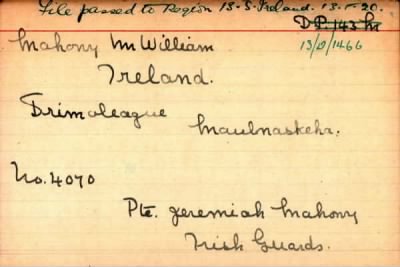 File passed to Region 13. S. Ireland. 13.1.20.
D.P. 143 M
Mahony Mr William
13/D/1466
Ireland.
Drimoleague
Maulnaskeha.
No. 4070
Pte. Jeremiah Mahony
Irish Guards.